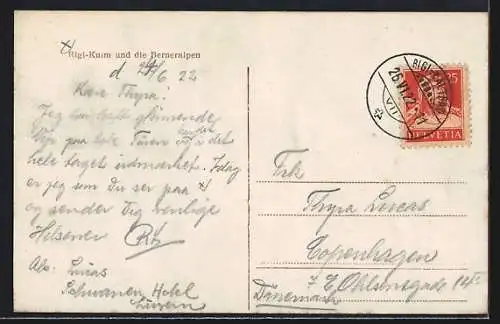 x Rigi-Kulm und die Berneralpen
d 24/6 22
Kære Thyra!
Jeg har haft glimrende
Vejr paa hele Turen og
vandet i det
hele taget udmærket. Idag
er jeg som Du ser paa x)
og sender Dig venlige
Hilsener
Ads: Lucas
Schwanen Hotel
Luzern
RIGI
26.VI.22
VII
25
HELVETIA
Frk
Thyra Lucas
Copenhagen
7 E. Ohlsensgade 14
Dänemark